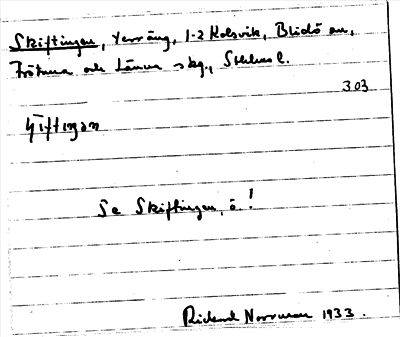 Skiftingen, Yxräng, 1-2 Kolsvik, Blidö sn,
Frötuna och Länna skg., Sthlms l.
303
ɧìftıŋən
Se Skiftingen, ö!
Rickard Norrman 1933.